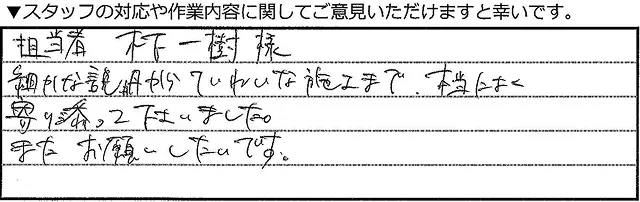 ▼スタッフの対応や作業内容に関してご意見いただけますと幸いです。
担当者 木下一樹様
細かな説明からていねいな施工まで、本当によく
寄り添って下さいました。
また お願いしたいです。